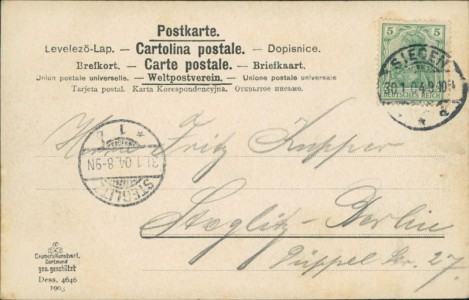 Postkarte.
Levelező-Lap. — Cartolina postale. — Dopisnice.
Brefkort. — Carte postale. — Briefkaart.
Union postale universelle. — Weltpostverein. — Unione postale universale
Tarjeta postal. Karta Korespondencyjna. Открытое письмо.
5 5
DEUTSCHES REICH
SIEGEN
30.1.04.9-10
STEGLITZ
31.1.04.8-9N
1
Herrn Fritz Küpper
Steglitz-Berlin
Düppel Str. 27.
Cramers Kunstanst.
Dortmund
ges. geschützt
Dess. 4646
1903